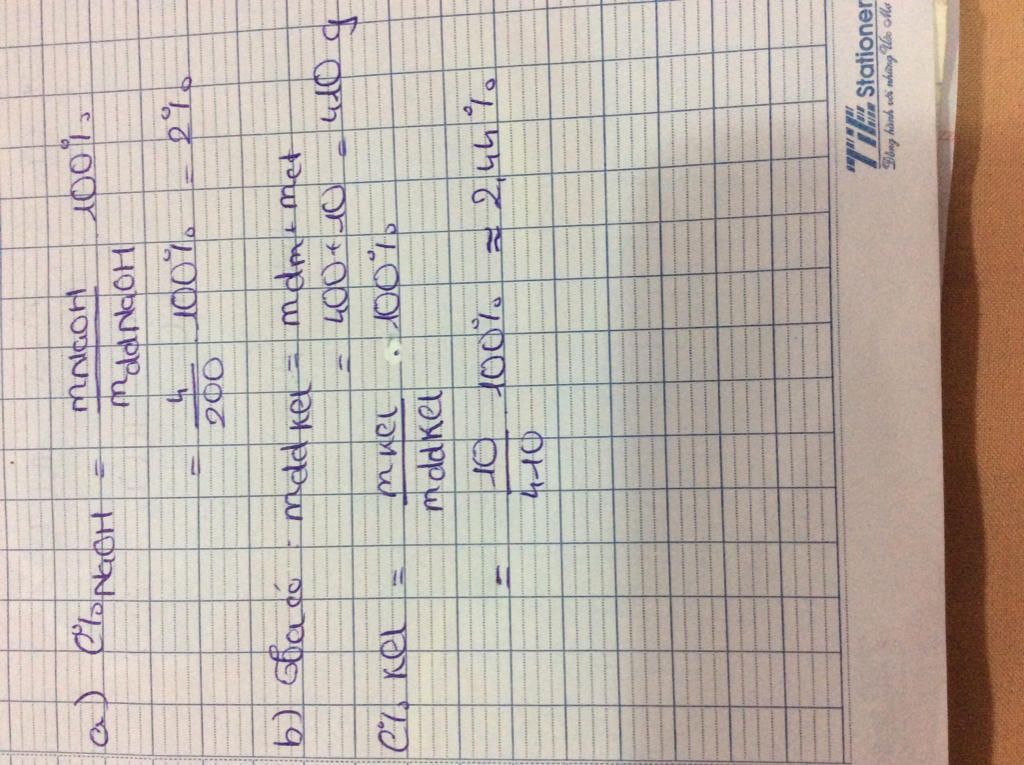 a) C%NaOH = mNaOH / mddNaOH . 100%
= 4/200 . 100% = 2%
b) Ta có : mddKCl = mdm + mct
= 400 + 10 = 410 g
C% KCl = mKCl / mddKCl . 100%
= 10/410 . 100% ≈ 2,44%
Stationer
Đồng hành với những Ước Mơ